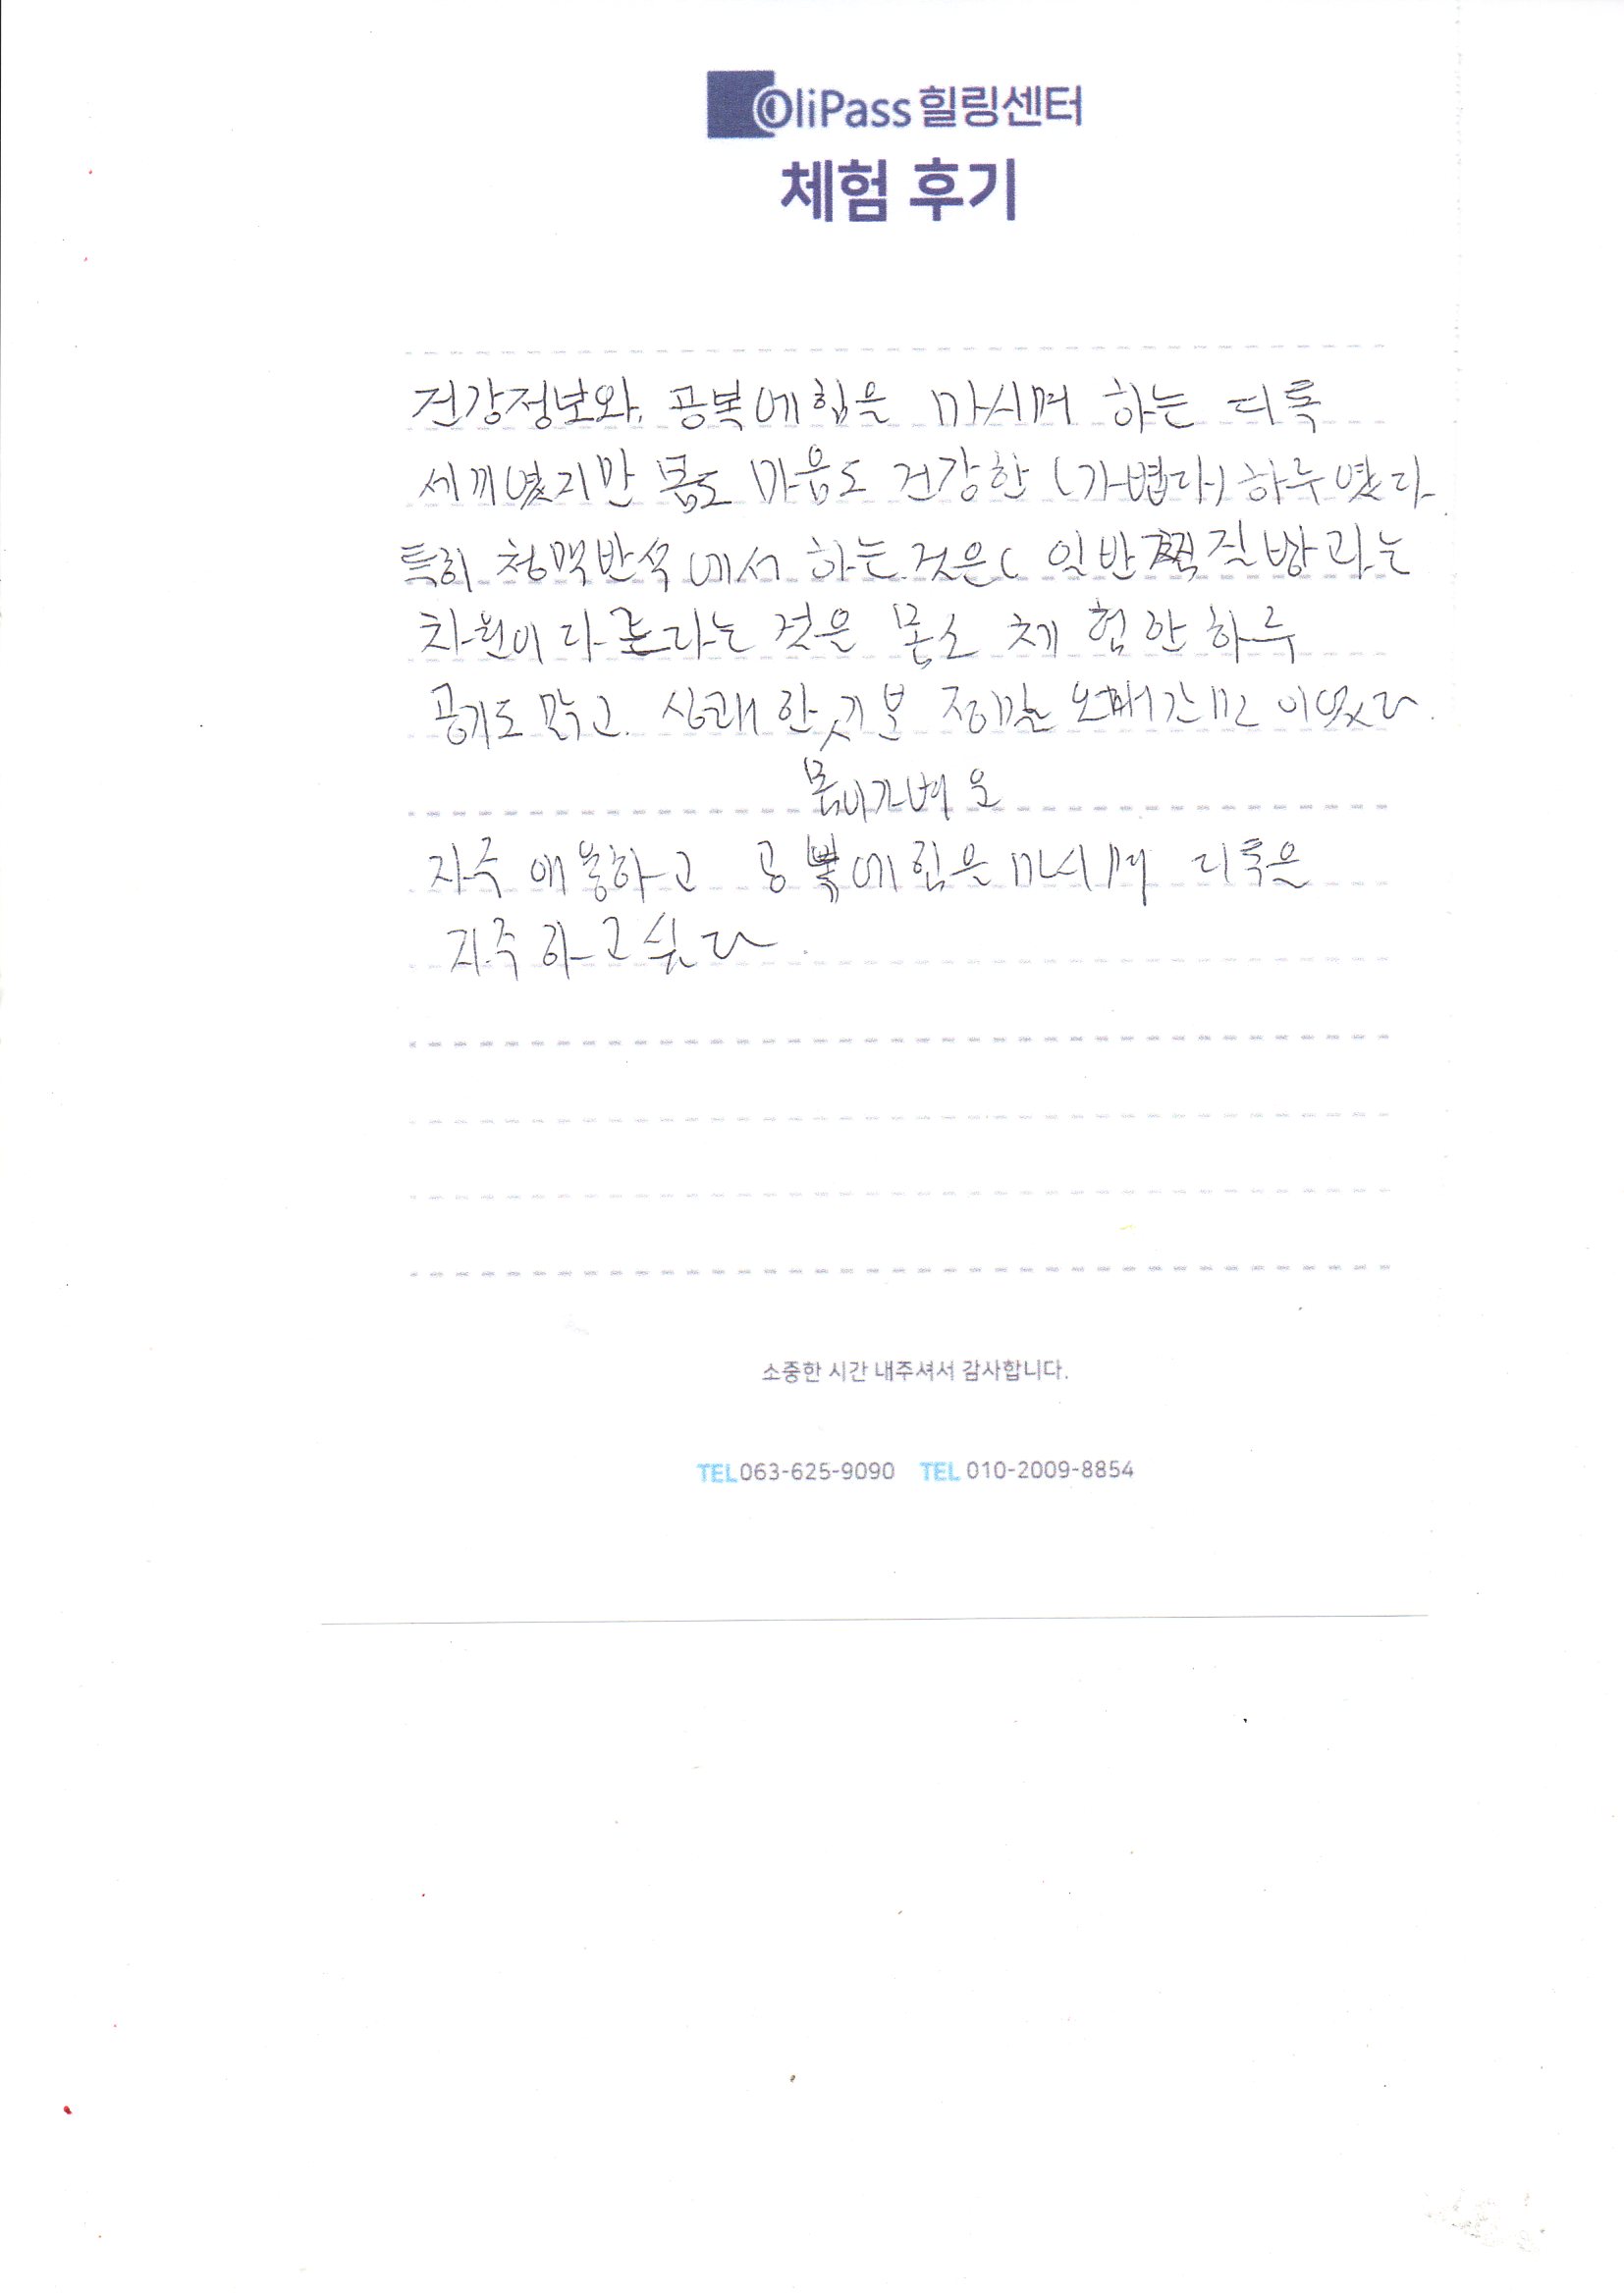 OliPass 힐링센터
체험 후기
건강정보와, 공복에힘을 마시며 하는 디톡
세끼였지만 몸도 마음도 건강한 (가볍다) 하루였다
특히 청맥반석에서 하는 것은( 일반 찜질방과는
차원이 다르다는 것은 몸소 체험한 하루
공기도 맑고. 상쾌한 기분 정말 오래간만 이었다.
몸이가벼오
자주 애용하고 공복에힘을 마시며 디톡은
자주 하고싶다.
소중한 시간 내주셔서 감사합니다.
TEL 063-625-9090 TEL 010-2009-8854